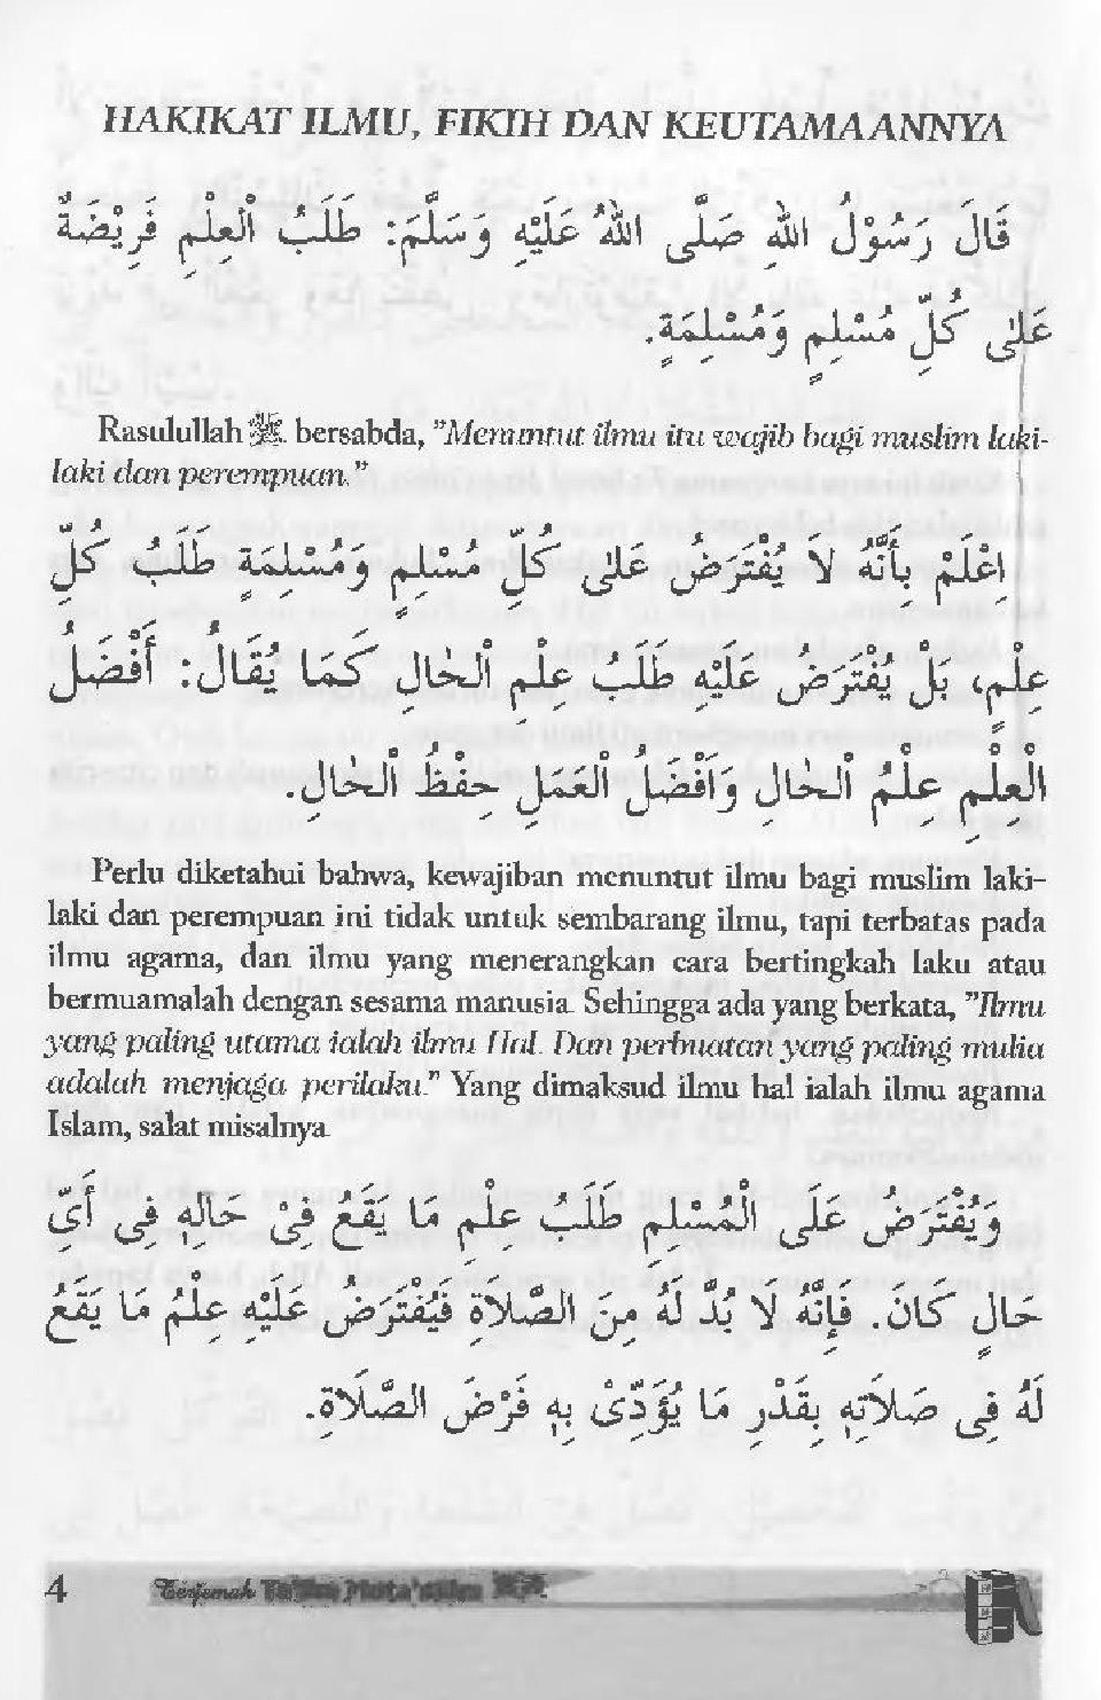 HAKIKAT ILMU, FIKIH DAN KEUTAMAANNYA
قَالَ رَسُوْلُ اللهِ صَلَّى اللهُ عَلَيْهِ وَسَلَّمَ: طَلَبُ الْعِلْمِ فَرِيْضَةٌ
عَلٰى كُلِّ مُسْلِمٍ وَمُسْلِمَةٍ.
Rasulullah ﷺ bersabda, "Menuntut ilmu itu wajib bagi muslim laki-
laki dan perempuan."
اِعْلَمْ بِأَنَّهُ لاَ يُفْتَرَضُ عَلٰى كُلِّ مُسْلِمٍ وَمُسْلِمَةٍ طَلَبُ كُلِّ
عِلْمٍ، بَلْ يُفْتَرَضُ عَلَيْهِ طَلَبُ عِلْمِ الْحَالِ كَمَا يُقَالُ: أَفْضَلُ
الْعِلْمِ عِلْمُ الْحَالِ وَاَفْضَلُ الْعَمَلِ حِفْظُ الْحَالِ.
Perlu diketahui bahwa, kewajiban menuntut ilmu bagi muslim laki-
laki dan perempuan ini tidak untuk sembarang ilmu, tapi terbatas pada
ilmu agama, dan ilmu yang menerangkan cara bertingkah laku atau
bermuamalah dengan sesama manusia. Sehingga ada yang berkata, "Ilmu
yang paling utama ialah ilmu Hal. Dan perbuatan yang paling mulia
adalah menjaga perilaku." Yang dimaksud ilmu hal ialah ilmu agama
Islam, salat misalnya.
وَيُفْتَرَضُ عَلَى الْمُسْلِمِ طَلَبُ عِلْمِ مَا يَقَعُ فِىْ حَالِهِ فِى أَىِّ
حَالٍ كَانَ. فَإِنَّهُ لاَ بُدَّ لَهُ مِنَ الصَّلاَةِ فَيُفْتَرَضُ عَلَيْهِ عِلْمُ مَا يَقَعُ
لَهُ فِى صَلاَتِهِ بِقَدْرِ مَا يُؤَدِّىْ بِهِ فَرْضَ الصَّلاَةِ.
4
Terjemah Ta'lim Muta'allim